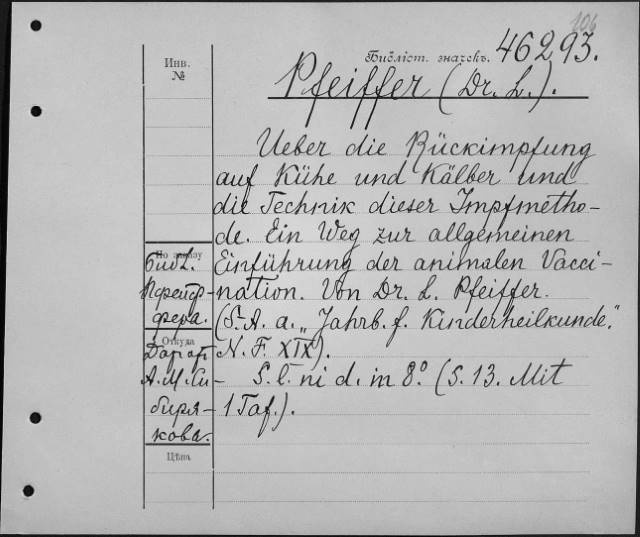 106
Инв.
№
Библіот. значекъ. 46293.
Pfeiffer (Dr. L.).
Ueber die Rückimpfung
auf Kühe und Kälber und
die Technik dieser Impfmetho-
de. Ein Weg zur allgemeinen
Einführung der animalen Vacci-
nation. Von Dr. L. Pfeiffer.
(S. A. a. „Jahrb. f. Kinderheilkunde."
N. F. XIX).
S. l. ni d. in 8°. (S. 13. Mit
1 Taf.).
По заказу
Библ.
Пфейф-
фера.
Откуда
Дар от
А. М. Си-
биря-
кова.
Цѣна